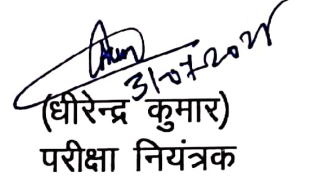 31-07-2025
(धीरेन्द्र कुमार)
परीक्षा नियंत्रक